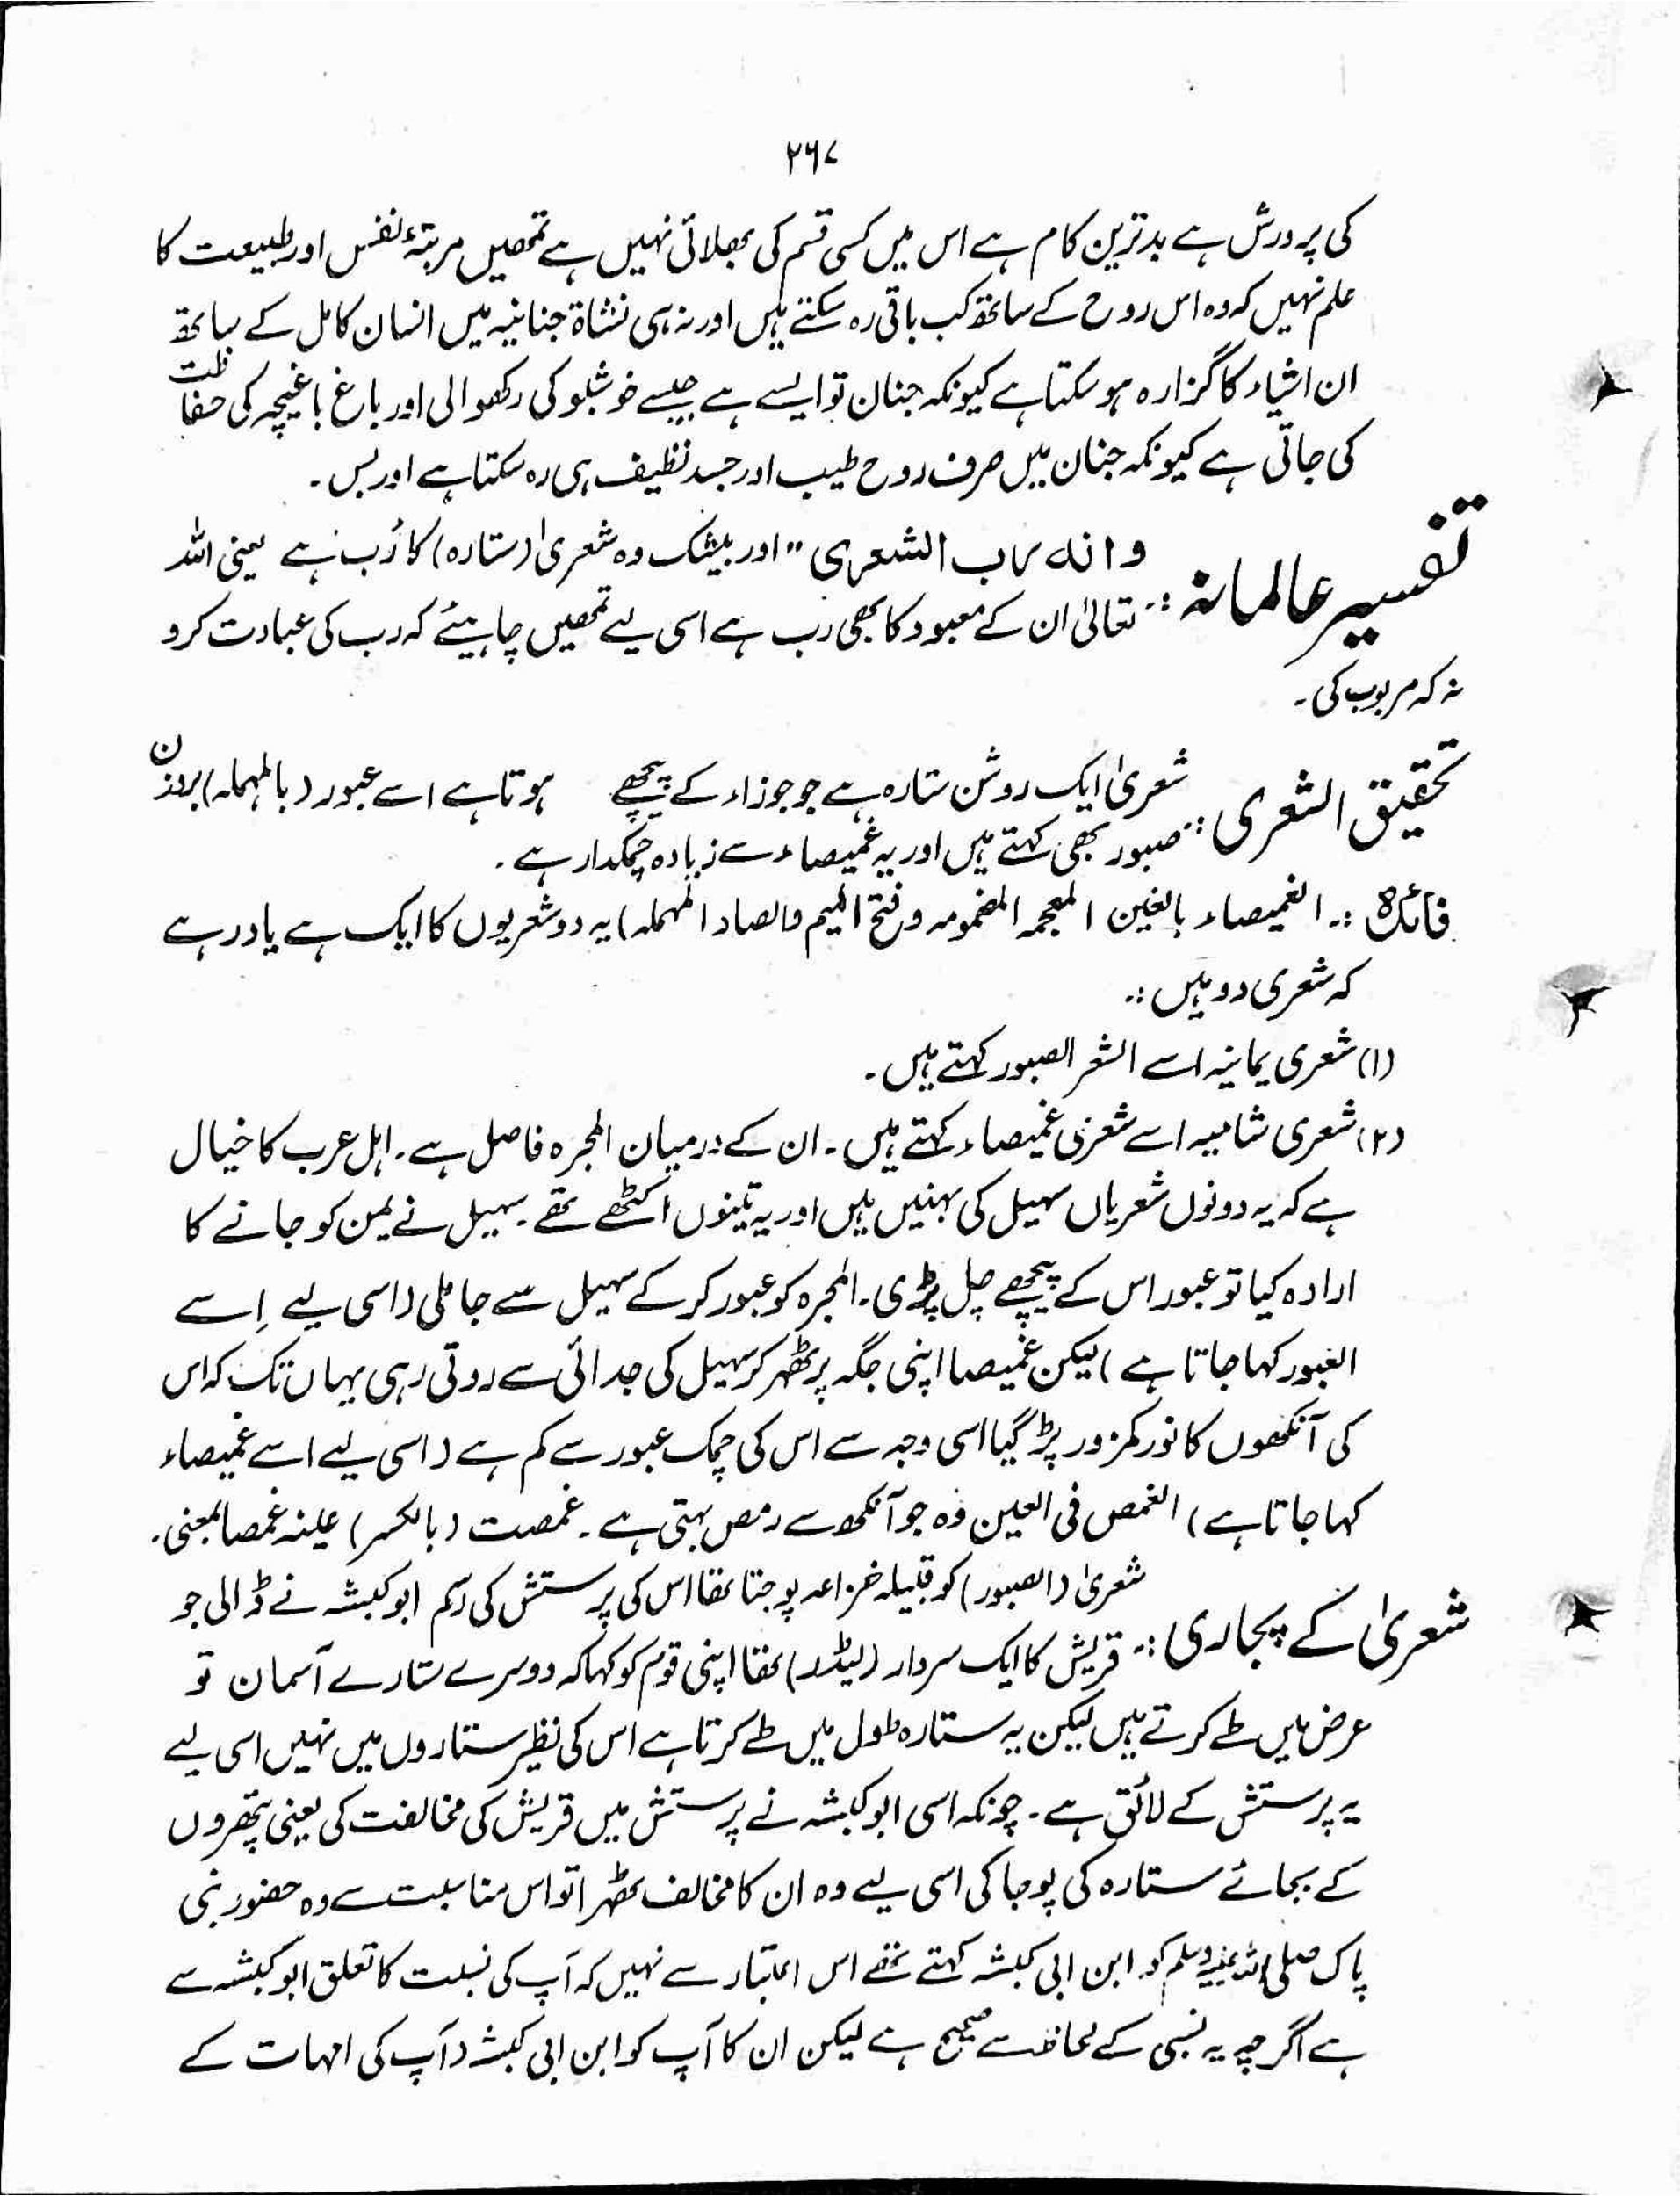 ۲۶۷
کی پرورش ہے بدترین کام ہے اس میں کسی قسم کی بھلائی نہیں ہے تمھیں مرتبۂ نفس اور طبیعت کا
علم نہیں کہ وہ اس روح کے ساتھ کب باقی رہ سکتے ہیں اور نہ ہی نشاۃ جنانیہ میں انسان کامل کے ساتھ
ان اشیاء کا گزارہ ہو سکتا ہے کیونکہ جنان تو ایسے ہے جیسے خوشبو کی رکھوالی اور باغ باغیچہ کی حفاظت
کی جاتی ہے کیونکہ جنان میں صرف روح طیب اور جسد نظیف ہی رہ سکتا ہے اور بس ۔
تفسیر عالمانہ :۔ وانه رب الشعری " اور بیشک وہ شعریٰ (ستارہ) کا رَب ہے یعنی اللہ
تعالیٰ ان کے معبود کا بھی رب ہے اسی لیے تمھیں چاہیئے کہ رب کی عبادت کرو
نہ کہ مربوب کی ۔
تحقیق الشعری :۔ شعریٰ ایک روشن ستارہ ہے جو جوزاء کے پیچھے ہوتا ہے اسے عبور (بالمہملہ) بروزن
صبور بھی کہتے ہیں اور یہ غمیصاء سے زیادہ چمکدار ہے ۔
فائدہ :۔ الغمیصاء بالغین المعجمہ المضمومہ وفتح المیم والصاد المہملہ) یہ دو شعریوں کا ایک ہے یاد رہے
کہ شعری دو ہیں :۔
(۱) شعری یمانیہ اسے الشعر الصبور کہتے ہیں ۔
(۲) شعری شامیہ اسے شعری غمیصاء کہتے ہیں ۔ ان کے درمیان المجرہ فاصل ہے ۔ اہل عرب کا خیال
ہے کہ یہ دونوں شعریاں سہیل کی بہنیں ہیں اور یہ تینوں اکٹھے تھے ۔ سہیل نے یمن کو جانے کا
ارادہ کیا تو عبور اس کے پیچھے چل پڑی ۔ المجرہ کو عبور کر کے سہیل سے جا ملی (اسی لیے اِسے
العبور کہا جاتا ہے) لیکن غمیصا اپنی جگہ پر ٹھہر کر سہیل کی جدائی سے روتی رہی یہاں تک کہ اس
کی آنکھوں کا نور کمزور پڑ گیا اسی وجہ سے اس کی چمک عبور سے کم ہے (اسی لیے اسے غمیصاء
کہا جاتا ہے) الغمص فی العین وہ جو آنکھ سے رمص بہتی ہے ۔ غمصت (بالکسر) عینہ غمصا بمعنی ۔
شعریٰ کے پجاری :۔ شعریٰ (الصبور) کو قبیلہ خزاعہ پوجتا تھا اس کی پرستش کی رسم ابو کبشہ نے ڈالی جو
قریش کا ایک سردار (لیڈر) تھا اپنی قوم کو کہا کہ دوسرے ستارے آسمان تو
عرض میں طے کرتے ہیں لیکن یہ ستارہ طول میں طے کرتا ہے اس کی نظیر ستاروں میں نہیں اسی لیے
یہ پرستش کے لائق ہے ۔ چونکہ اسی ابو کبشہ نے پرستش میں قریش کی مخالفت کی یعنی پتھروں
کے بجائے ستارہ کی پوجا کی اسی لیے وہ ان کا مخالف ٹھہرا تو اس مناسبت سے وہ حضور نبی
پاک صلی اللہ علیہ وسلم کو ابن ابی کبشہ کہتے تھے اس اعتبار سے نہیں کہ آپ کی نسبت کا تعلق ابو کبشہ سے
ہے اگرچہ یہ نسبی کے لحاظ سے صحیح ہے لیکن ان کا آپ کو ابن ابی کبشہ (آپ کی امہات کے